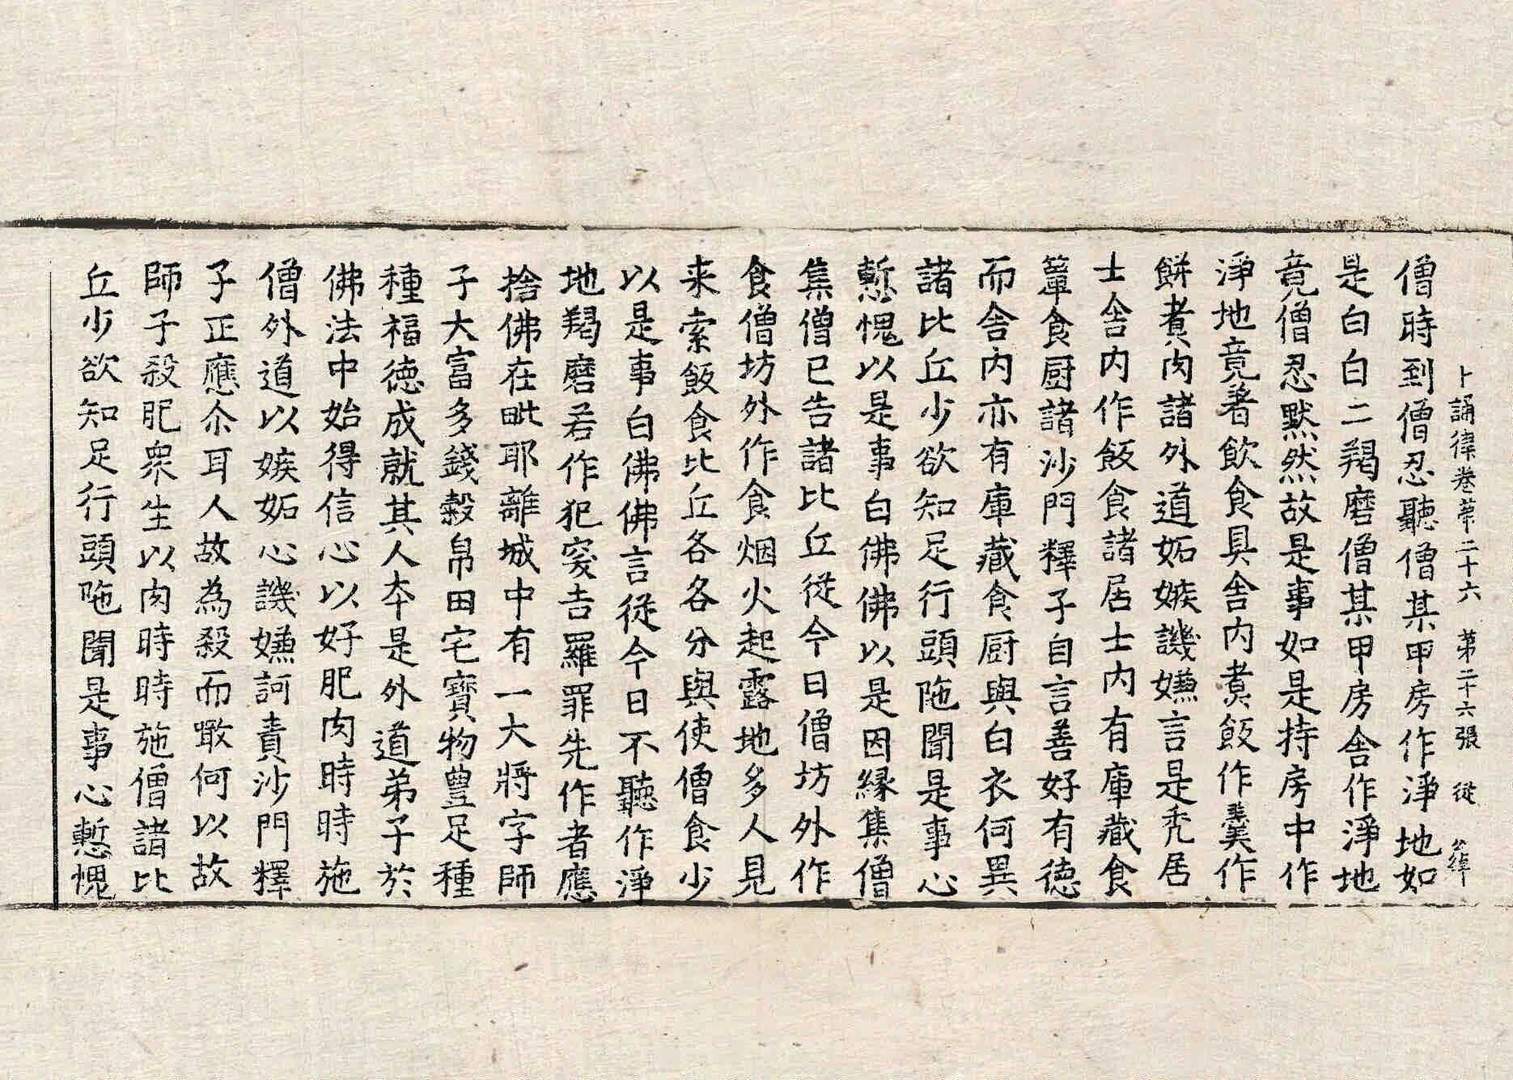 十誦律卷第二十六 第二十六張 從
僧時到僧忍聽僧某甲房作淨地如
是白白二羯磨僧某甲房舍作淨地
竟僧忍默然故是事如是持房中作
淨地竟著飲食具舍内煑飯作羹作
餅煑肉諸外道妬嫉譏嫌言是秃居
士舍内作飯食諸居士内有庫藏食
簞食厨諸沙門釋子自言善好有德
而舍内亦有庫藏食厨與白衣何異
諸比丘少欲知足行頭陁聞是事心
慙愧以是事白佛佛以是因緣集僧
集僧已告諸比丘從今日僧坊外作
食僧坊外作食烟火起露地多人見
来索飯食比丘各各分與使僧食少
以是事白佛佛言從今日不聽作淨
地羯磨若作犯突吉羅罪先作者應
捨佛在毗耶離城中有一大將字師
子大富多錢穀帛田宅寶物豊足種
種福德成就其人夲是外道弟子於
佛法中始得信心以好肥肉時時施
僧外道以嫉妬心譏嫌訶責沙門釋
子正應尒耳人故為殺而噉何以故
師子殺肥衆生以肉時時施僧諸比
丘少欲知足行頭陁聞是事心慙愧